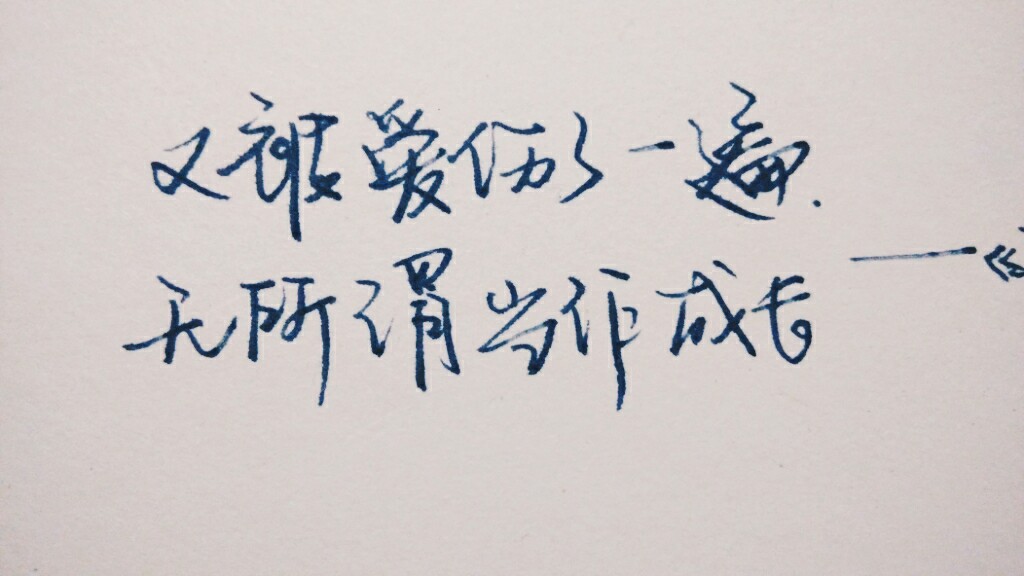 又被爱伤了一遍.
无所谓当作成长
——《